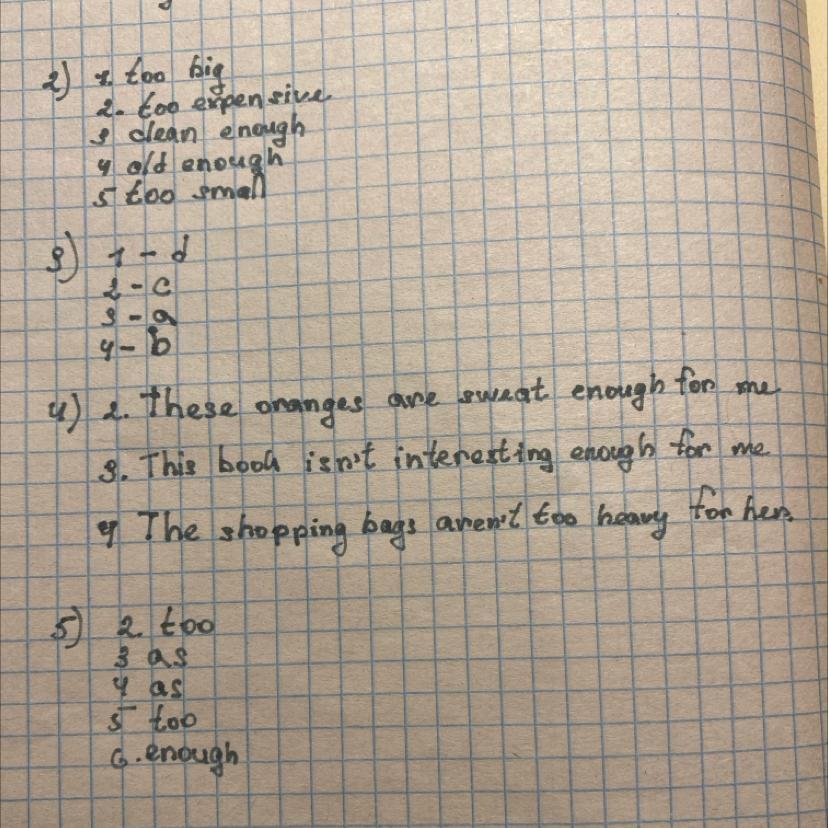 2) 1. too big
2. too expensive
3 clean enough
4 old enough
5 too small
3) 1 - d
2 - c
3 - a
4 - b
4) 2. These oranges are sweat enough for me
3. This book isn't interesting enough for me
4 The shopping bags aren't too heavy for her.
5) 2. too
3 as
4 as
5 too
6. enough